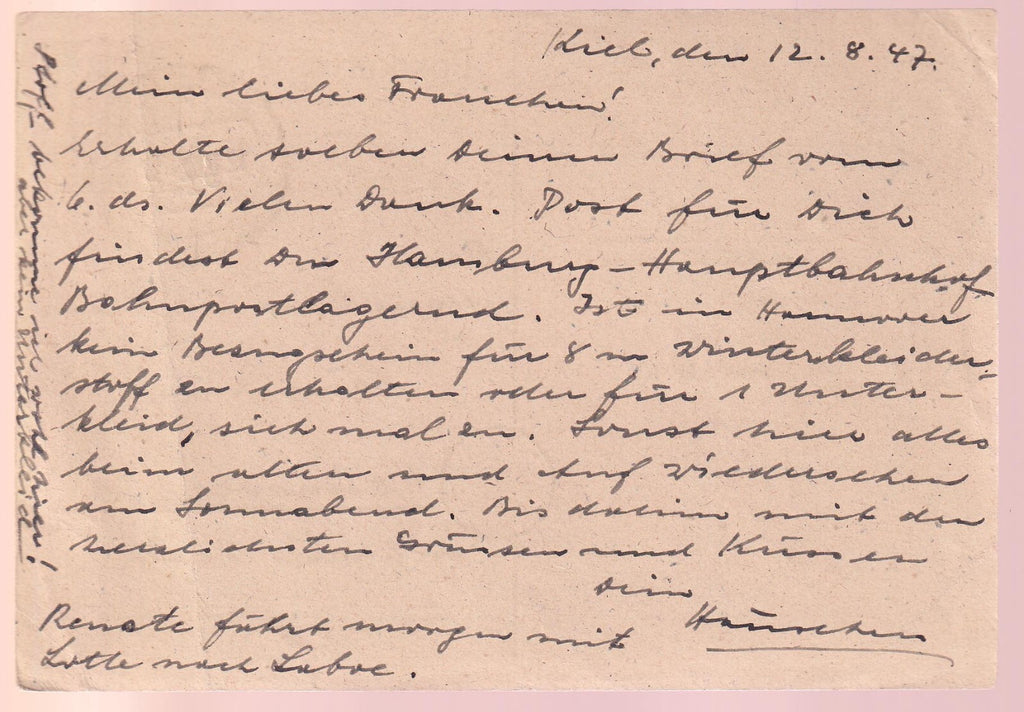 Kiel, den 12. 8. 47.
Mein liebes Frauchen!
Erhalte soeben Deinen Brief vom
6. ds. Vielen Dank. Post für Dich
findest Du Hamburg-Hauptbahnhof
Bahnpostlagernd. Ist in Hannover
kein Bezugschein für 8 m Winterkleider-
stoff zu erhalten oder für 1 Unter-
kleid, sieh mal zu. Sonst hier alles
beim alten und Auf Wiedersehen
am Sonnabend. Bis dahin mit den
herzlichsten Grüssen und Küssen
Dein
Hänschen
Renate fährt morgen mit
Lotte nach Laboe.
Stoff bekomme ich wohl hier!
aber kein Unterkleid